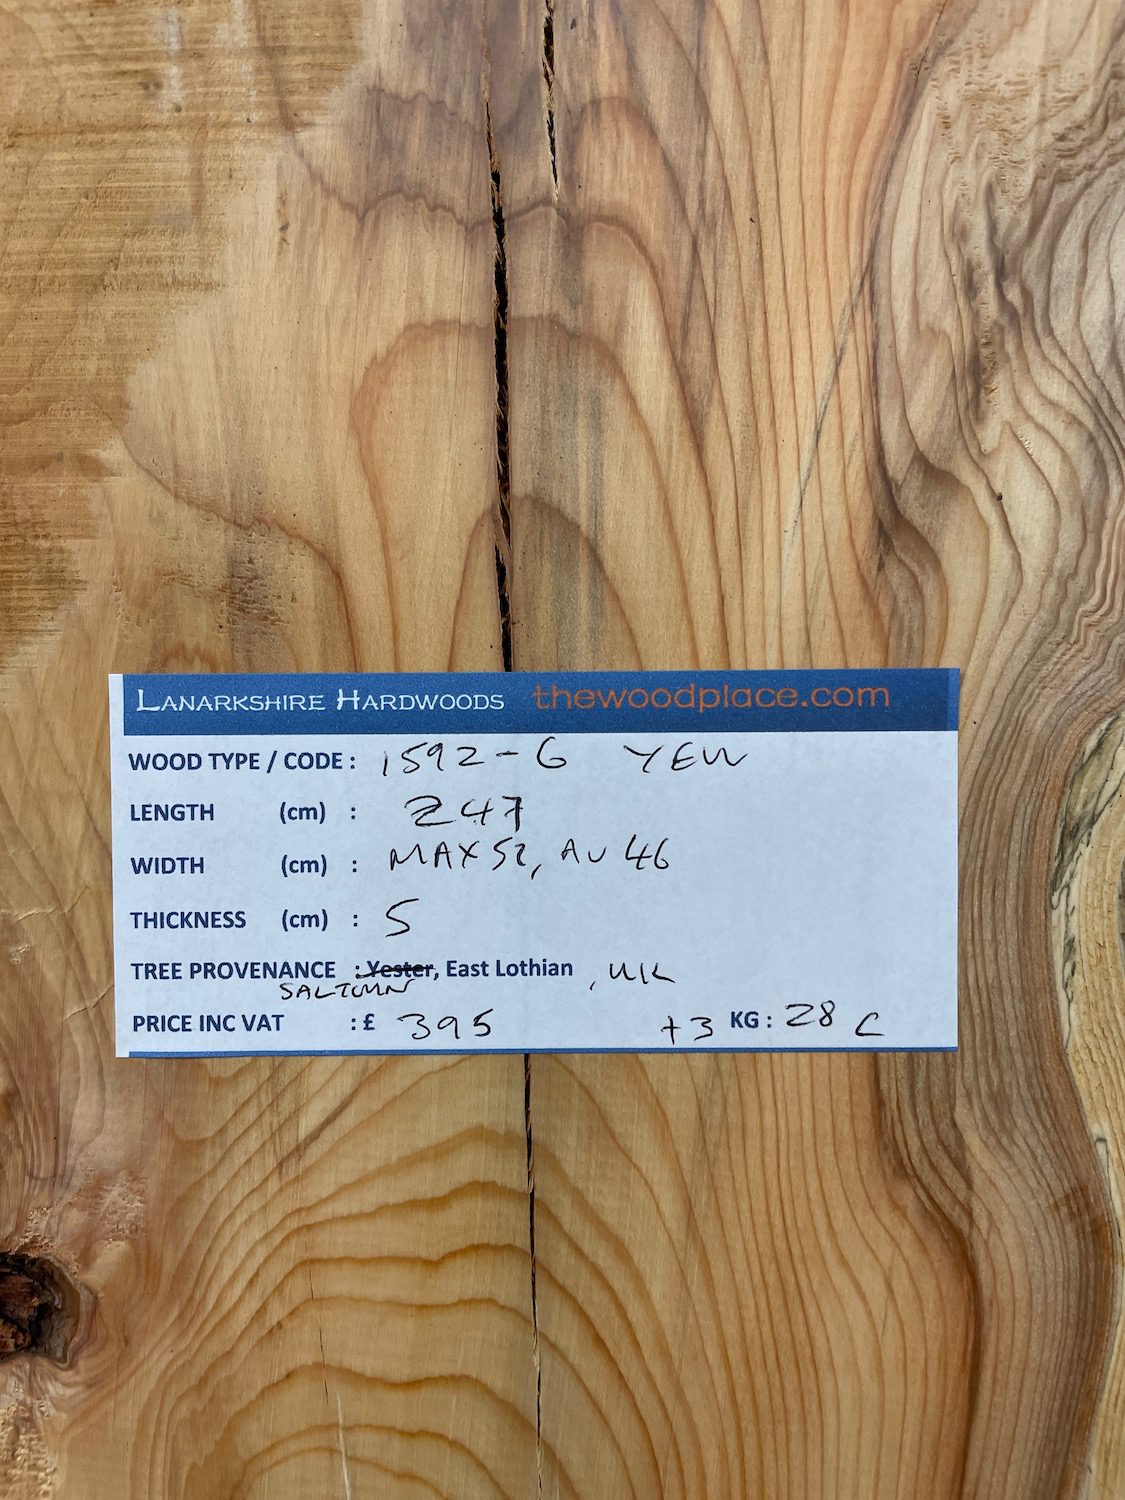 LANARKSHIRE HARDWOODS thewoodplace.com
WOOD TYPE / CODE : 1592-6 YEW
LENGTH (cm) : 247
WIDTH (cm) : MAX 52, AV 46
THICKNESS (cm) : 5
TREE PROVENANCE : Yester, East Lothian, UK
SALTOUN
PRICE INC VAT : £ 395 +3 KG : 28 C